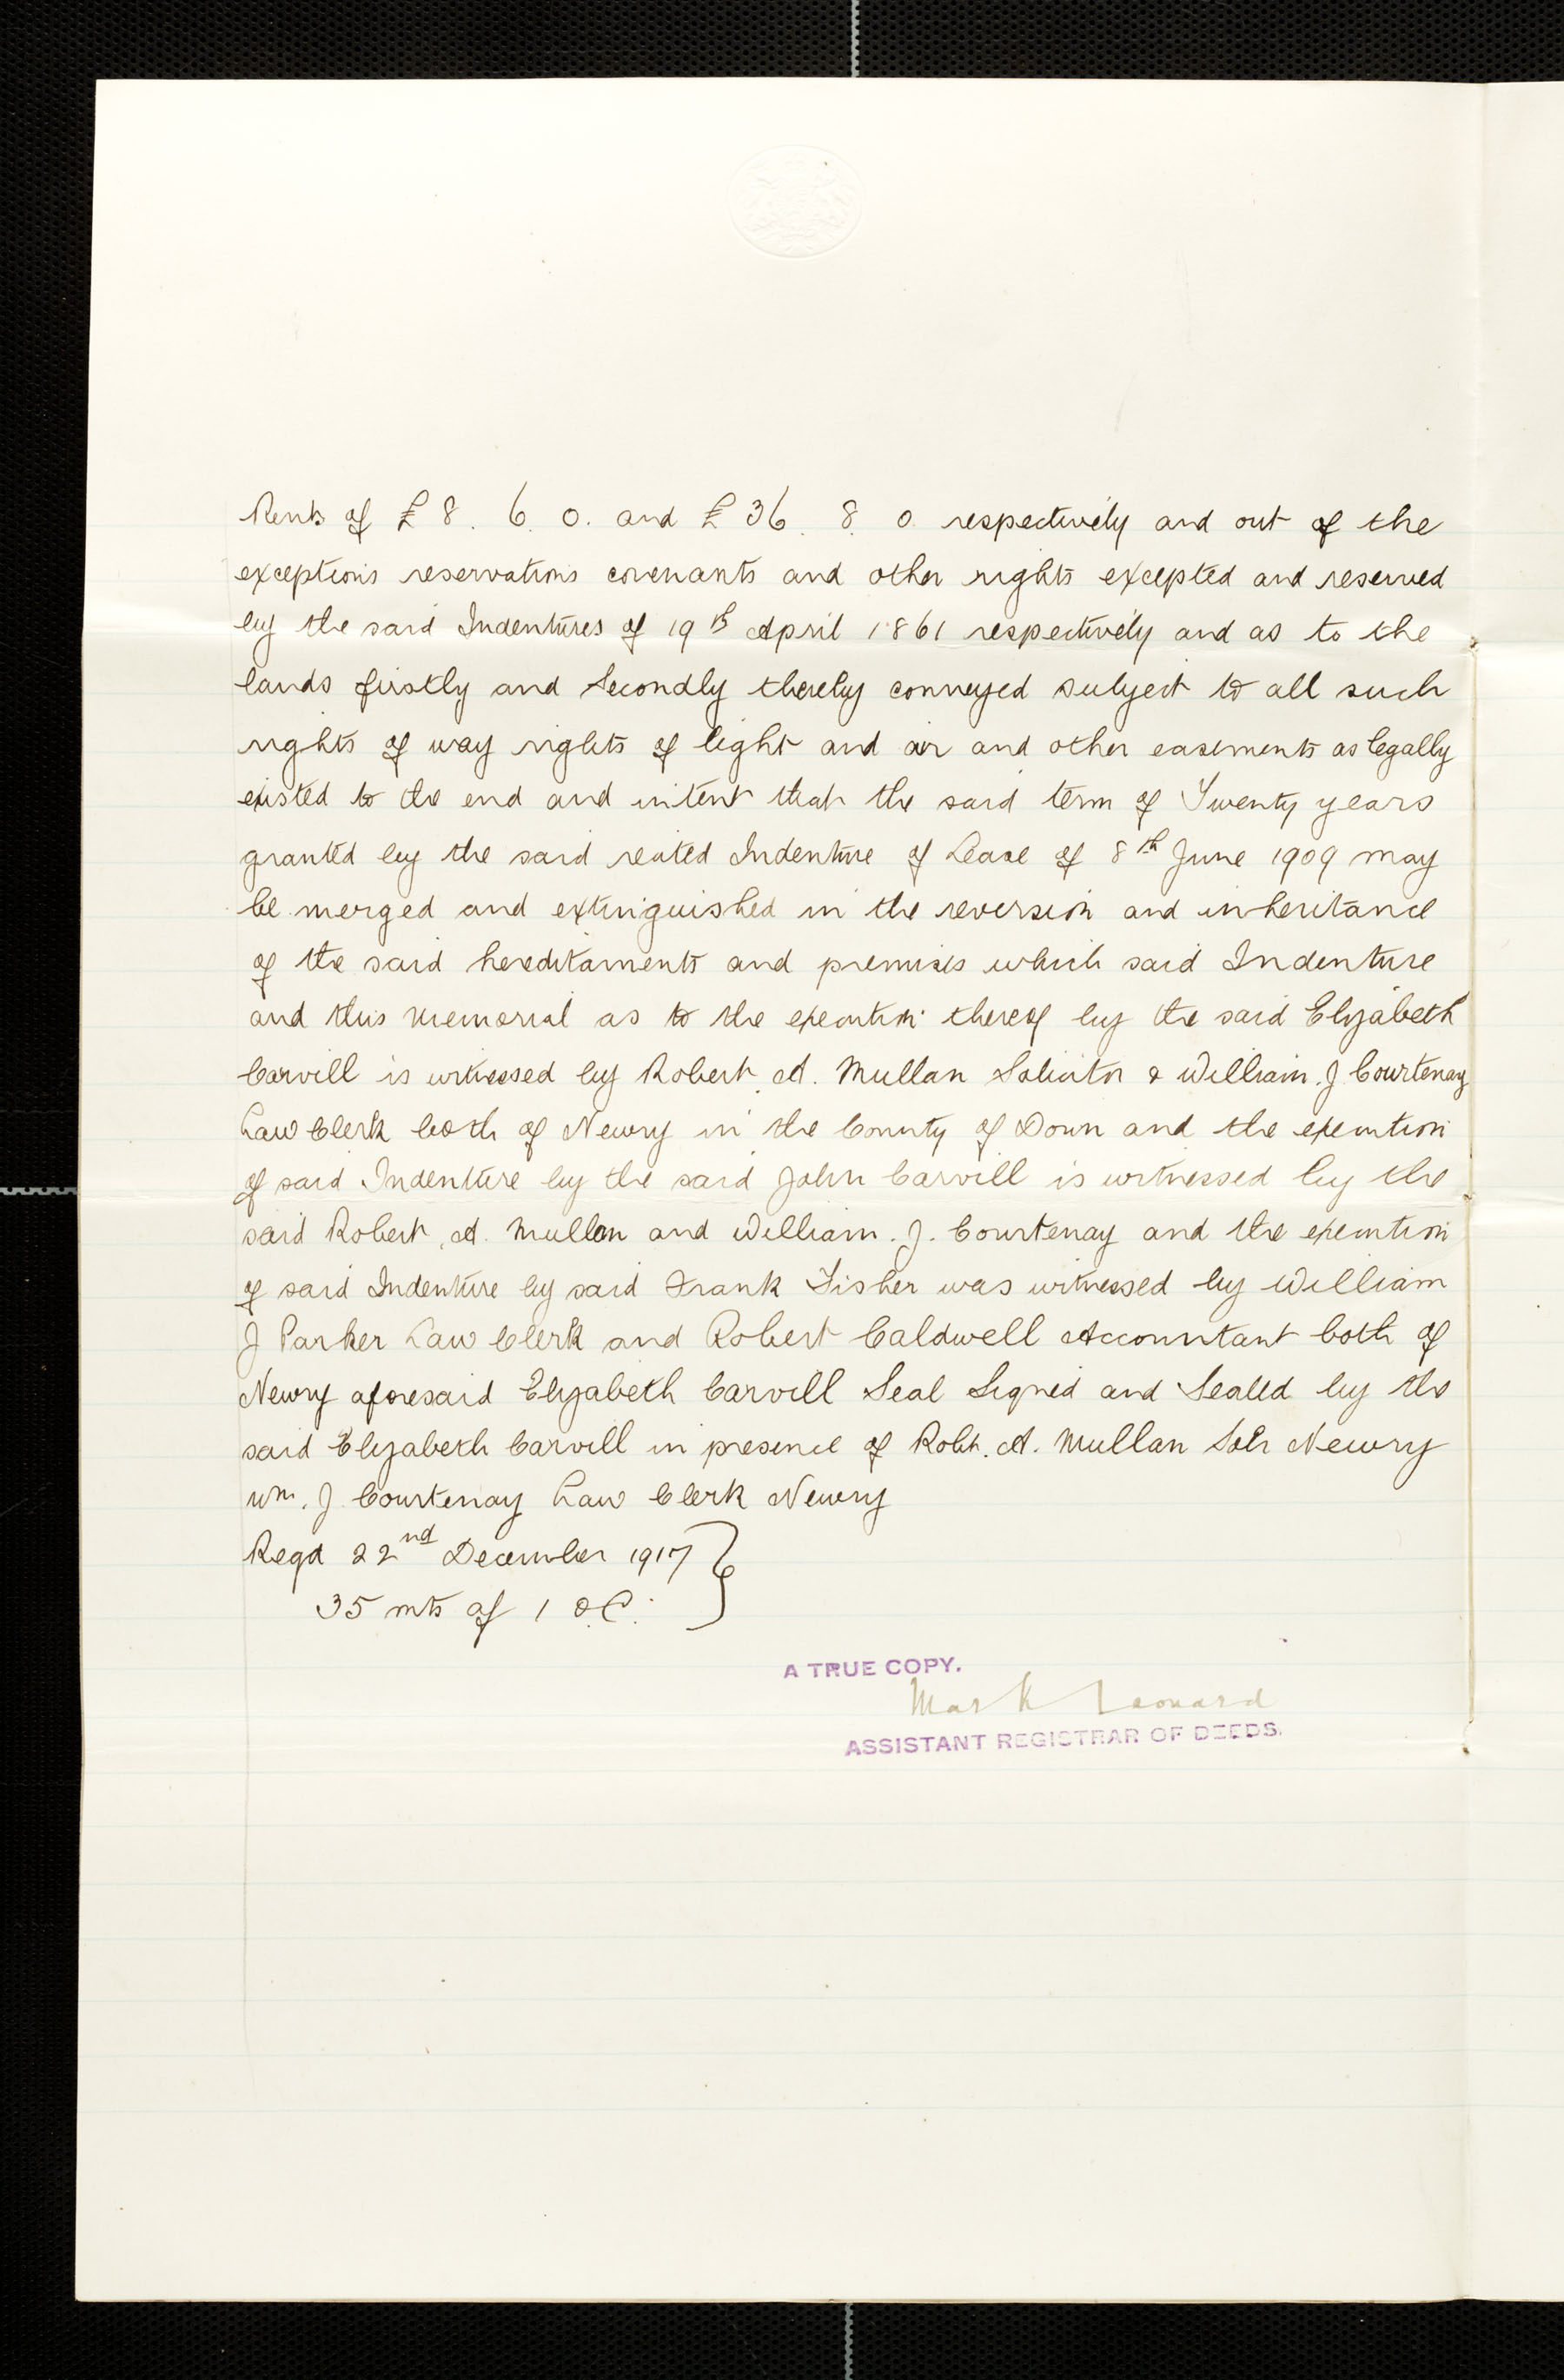 Rents of £8. 6. 0. and £36. 8. 0 respectively and out of the
exceptions reservations covenants and other rights excepted and reserved
by the said Indentures of 19th April 1861 respectively and as to the
lands firstly and Secondly thereby conveyed subject to all such
rights of way rights of light and air and other easements as legally
existed to the end and intent that the said term of Twenty years
granted by the said recited Indenture of Lease of 8th June 1909 may
be merged and extinguished in the reversion and inheritance
of the said hereditaments and premises which said Indenture
and this Memorial as to the execution thereof by the said Elizabeth
Carvill is witnessed by Robert A. Mullan Solicitor & William. J Courtenay
Law Clerk both of Newry in the County of Down and the execution
of said Indenture by the said John Carvill is witnessed by the
said Robert. A. Mullan and William. J. Courtenay and the execution
of said Indenture by said Frank Fisher was witnessed by William
J Parker Law Clerk and Robert Caldwell Accountant both of
Newry aforesaid Elizabeth Carvill Seal Signed and Sealed by the
said Elizabeth Carvill in presence of Robt. A. Mullan Solr Newry
Wm. J Courtenay Law Clerk Newry
Regd 22nd December 1917
35 mts of 1 O.C.
A TRUE COPY.
Mark Leonard
ASSISTANT REGISTRAR OF DEEDS.